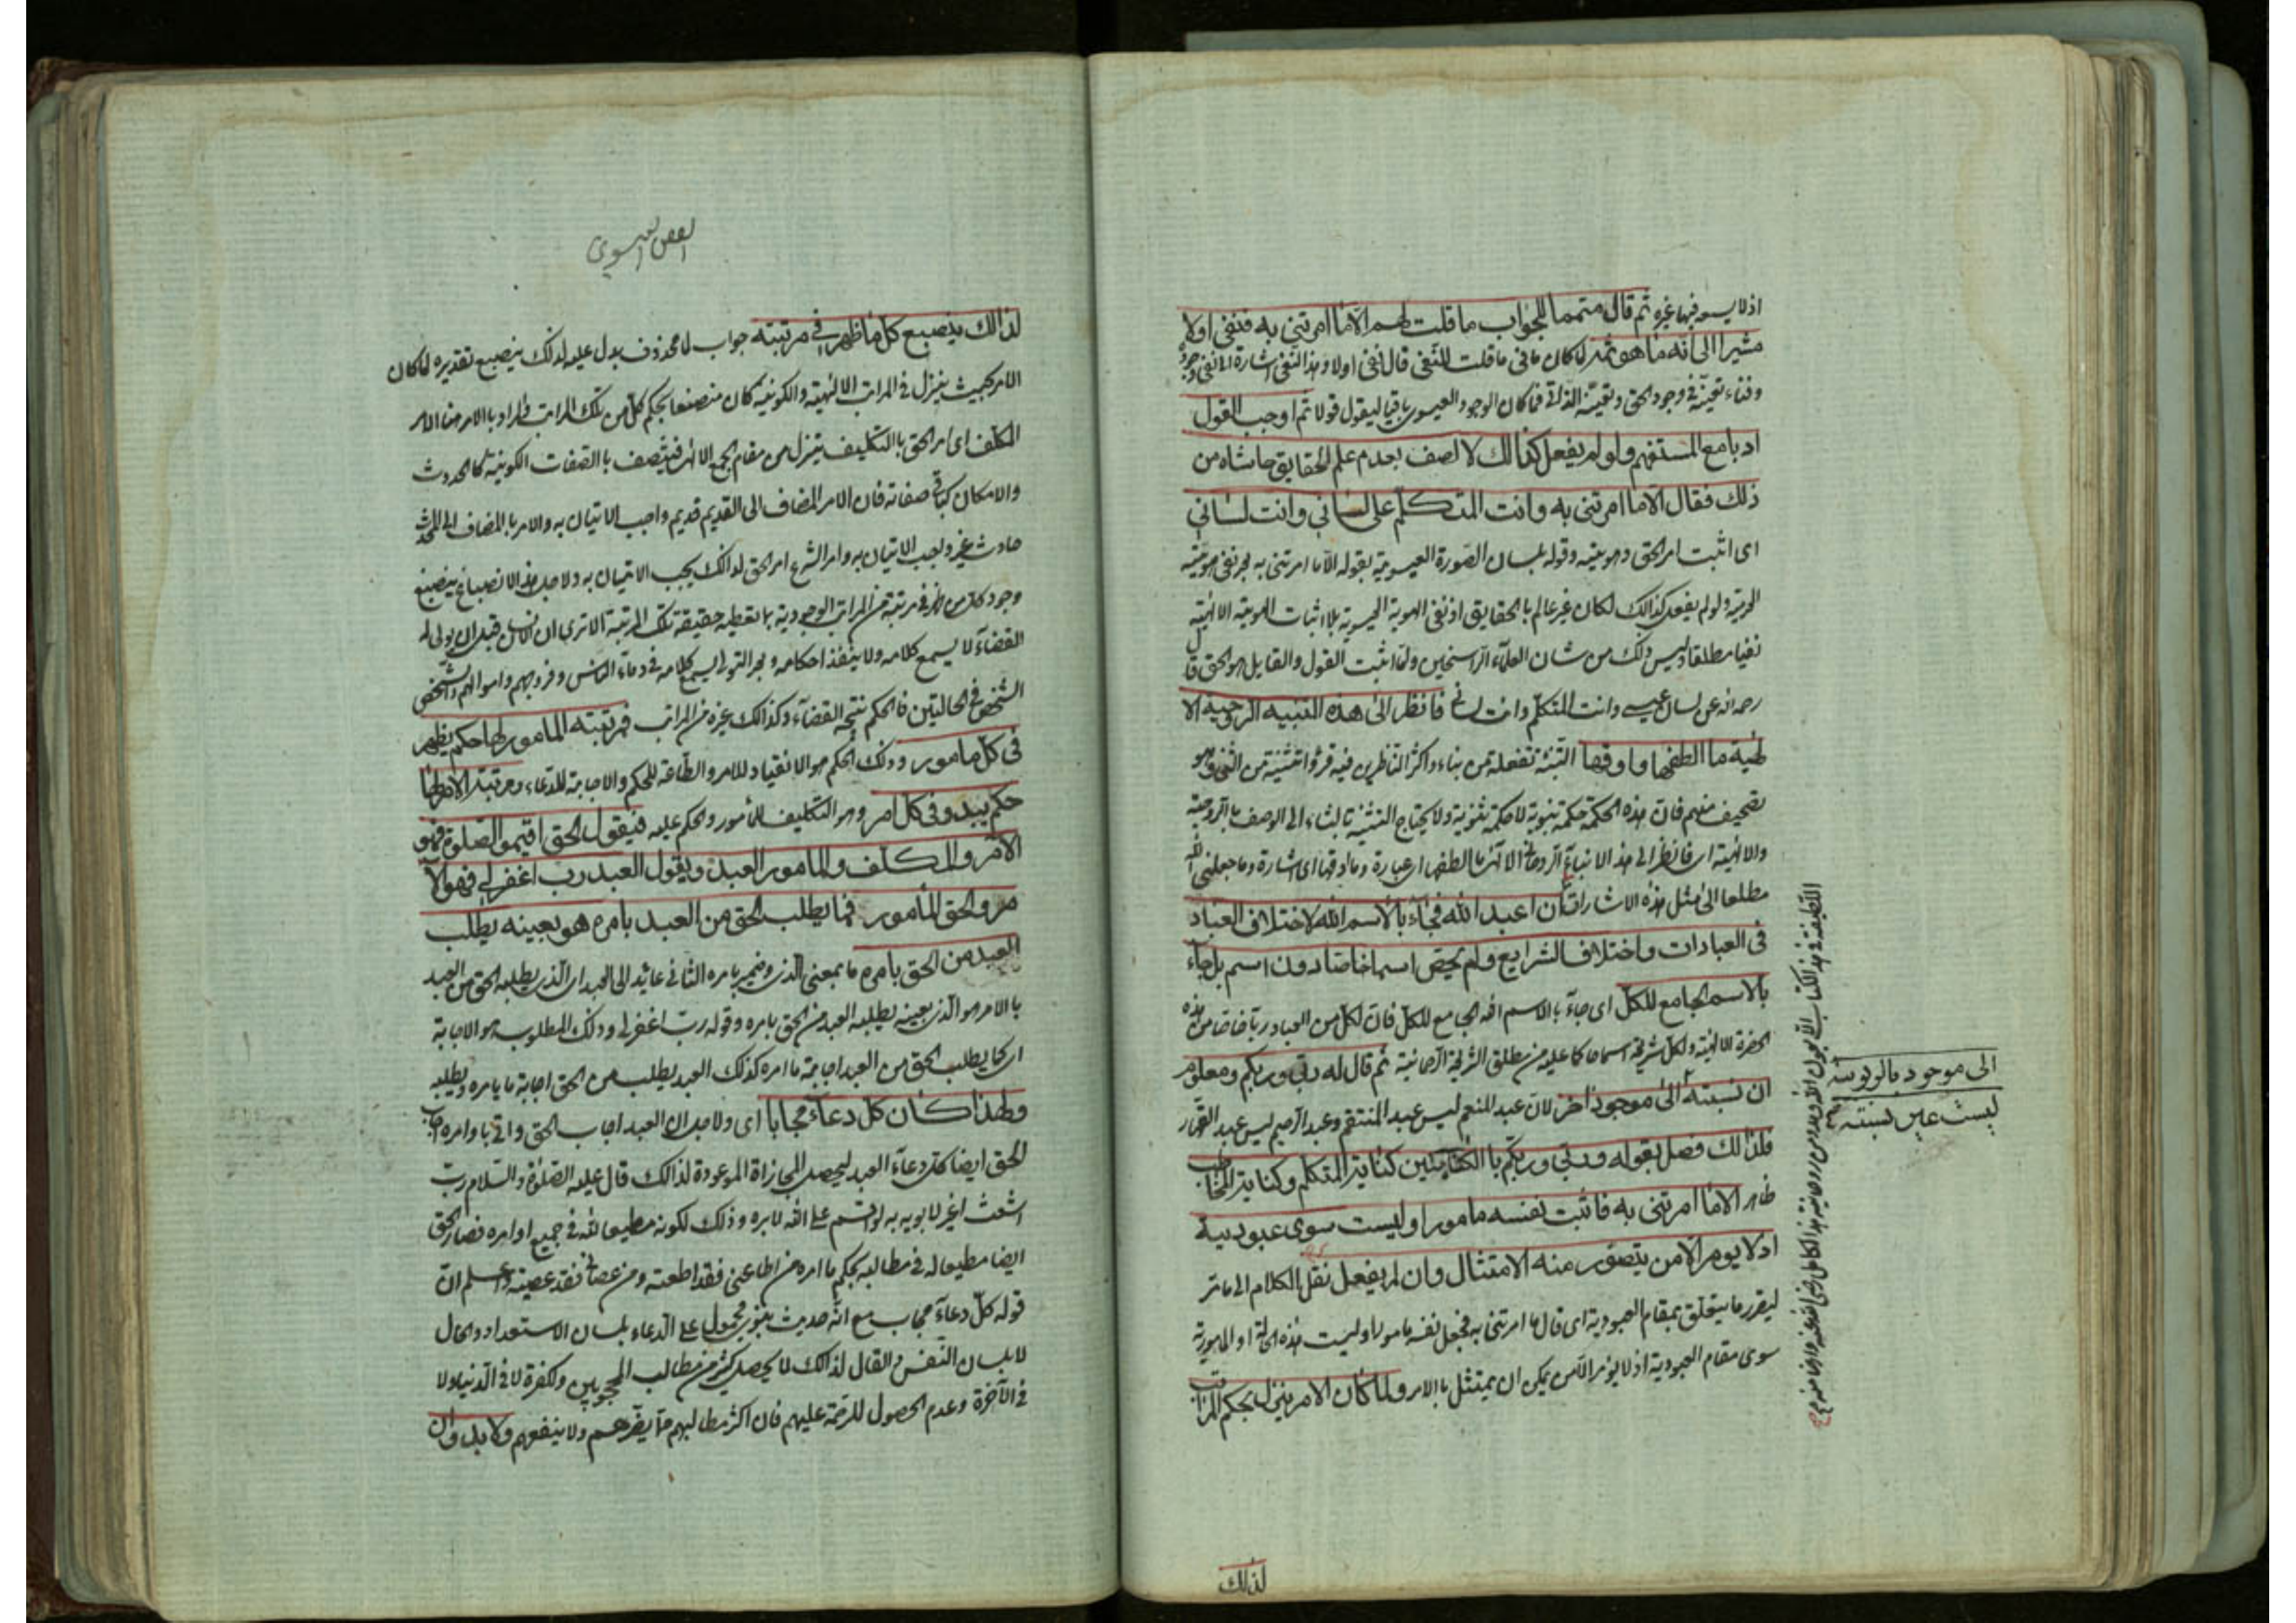 اذ لا يسعه فيها غيره ثم قال متمما للجواب ما قلت لهم الا ما امرتني به فنفى اولا
مشيرا الى انه ما هو ثمه لما كان ما في ما قلت للنفي قال نفى اولا وهذا النفي اشارة الى نفي وجوده
وفناء تعينه في وجود الحق وتعينه الذاتي فما كان الوجود العيسوي باقيا ليقول قولا ثم اوجب القول
ادبا مع المستفهم ولو لم يفعل كذالك لاتصف بعدم علم الحقايق حاشاه من
ذلك فقال الا ما امرتني به وانت المتكلم على لساني وانت لساني
اى اثبت امر الحق وهويته وقوله بلسان الصورة العيسوية بقوله الا ما امرتني به نفى هويته
ولو لم يفعل كذالك لكان غير عالم بالحقايق اذ نفى الهوية العيسوية بلا اثبات الهوية الالهية
نفيا مطلقا وليس ذلك من شان العلماء الراسخين ولما اثبت القول والقايل هو الحق قال
رحمه الله عن لسان عيسى وانت المتكلم وانت لساني فانظر الى هذه التنبية الروحية الا
لهية ما الطفها وادقها التنبئة تفعلة من نباء واكثر الناظرين فيه قرؤا تثنية من الثنى وهو
تصحيف منهم فان هذه الحكمة حكمة نبوية لا حكمة ثنوية ولا يحتاج التثنية بالثاء الى الوصف بالروحية
والالهية اى فانظر الى هذا الانباء الروحاني الالهى ما الطفها اى عبارة وما ادقها اى اشارة وما جعلني الله
مطلعا الى مثل هذه الاشارات ان اعبد الله فجاء بالاسم الله لاختلاف العباد
فى العبادات واختلاف الشرايع ولم يخص اسما خاصا دون اسم بل جاء
بالاسم الجامع للكل اى جاء بالاسم الله الجامع للكل فان لكل من العباد ربا خاصا من هذه
الحضرة الالهية ولكل شريعة اسما حاكما عليه من مطلق الشريعة الرحمانية ثم قال له ربي وربكم ومعلوم
ان نسبته الى موجود اخر لان عبد المنعم ليس عبد المنتقم وعبد الرحيم ليس عبد القهار
فلذالك فصل بقوله ربي وربكم بالكنايتين كناية المتكلم وكناية المخاطب
ظاهر الا ما امرتني به فاثبت نفسه مامورا وليست سوى عبودية
اذ لا يومر الا من يتصور منه الامتثال وان لم يفعل نقل الكلام الى ما مر
ليقرر ما يتعلق بمقام العبودية اى قال ما امرتني به فجعل نفسه مامورا وليست هذه الحالة او المامورية
سوى مقام العبودية اذ لا يؤمر الا من يمكن ان يمتثل بالامر ولما كان الامر ينزل بحكم المراتب
لذالك
الى موجود بالربوبية
ليست عين نسبته
الفص العيسوى
لذالك ينصبغ كل ما ظهر في مرتبته جواب لما محذوف يدل عليه لذلك ينصبغ تقديره لما كان
الامر بحيث ينزل فى المراتب الالهية والكونية كان منصبغا بحكم كل من تلك المراتب والمراد بالامر هنا الامر
المكلف اى امر الحق بالتكليف يتنزل من مقام الجمع الالهى فيتصف بالصفات الكونية كالحدوث
والامكان كباقى صفاته فان الامر المضاف الى القديم قديم واجب الاتيان به والامر بالمضاف الى المحدث
حادث غير واجب الاتيان به وامر الشرع امر الحق لذالك يجب الاتيان به ولاجل هذا الانصباغ ينصبغ
وجود كل من ظهر فى مرتبة من المراتب الوجودية بما تعطيه حقيقة تلك المرتبة الا ترى ان الانسان قبل ان يولى له
القضاء لا يسمع كلامه ولا ينفذ احكامه وبعد التولى يسمع كلامه فى دماء الناس وفروجهم واموالهم والشخص
الشخص فى الحالتين فالحكم نتيجة القضاء وكذالك غيره من المراتب فمرتبته المامور لها حكم يظهر
فى كل مامور وذلك الحكم هو الانقياد للامر والطاعة للحكم والاجابة للدعاء ومرتبة الامر لها
حكم يبدو فى كل امر وهو التكليف للمأمور والحكم عليه فيقول الحق اقيموا الصلوة فهو
الآمر والمكلف والمامور العبد ويقول العبد رب اغفر لي فهو الآ
مر والحق المأمور فما يطلب الحق من العبد بامره هو بعينه يطلب
العبد من الحق بامره ما بمعنى الذى وضمير بامره الثانى عايد الى العبد اى الذى يطلبه الحق من العبد
بالامر هو الذى بعينه يطلبه العبد من الحق بامره وقوله رب اغفر لى وذلك المطلوب هو الاجابة
اى كما يطلب الحق من العبد اجابة ما امره كذلك العبد يطلب من الحق اجابة ما يامره ويطلبه
ولهذا كان كل دعاء مجابا اى ولاجل ان العبد اجاب الحق واتى باوامره اجاب
الحق ايضا كل دعاء العبد ليحصل المجازاة الموعودة لذالك قال عليه الصلوة والسلام رب
اشعث اغبر لا يوبه به لو اقسم على الله لابره وذلك لكونه مطيعا لله فى جميع اوامره فصار الحق
ايضا مطيعا له فى مطالبه بحكم ما امره من اطاعني فقد اطعته ومن عصانى فقد عصيته واعلم ان
قوله كل دعاء مجاب مع انه حديث نبوى محمول على الدعاء بلسان الاستعداد والحال
لا بلسان النفس والقال لذالك لا يحصل كثير من مطالب المحجوبين والكفرة لا فى الدنيا ولا
فى الآخرة وعدم الحصول للرحمة عليهم فان اكثر مطالبهم مما يضرهم ولا ينفعهم ولا بد وان